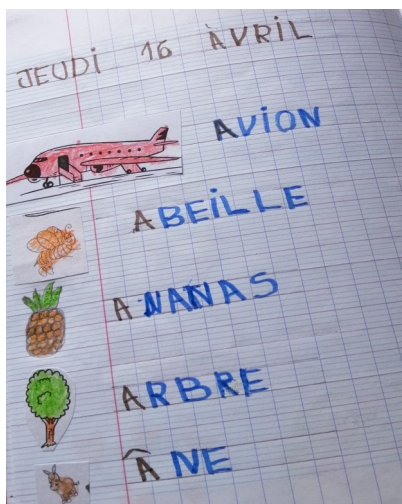 JEUDi 16 AVRiL
AViON
ABEiLLE
ANANAS
ARBRE
ÂNE